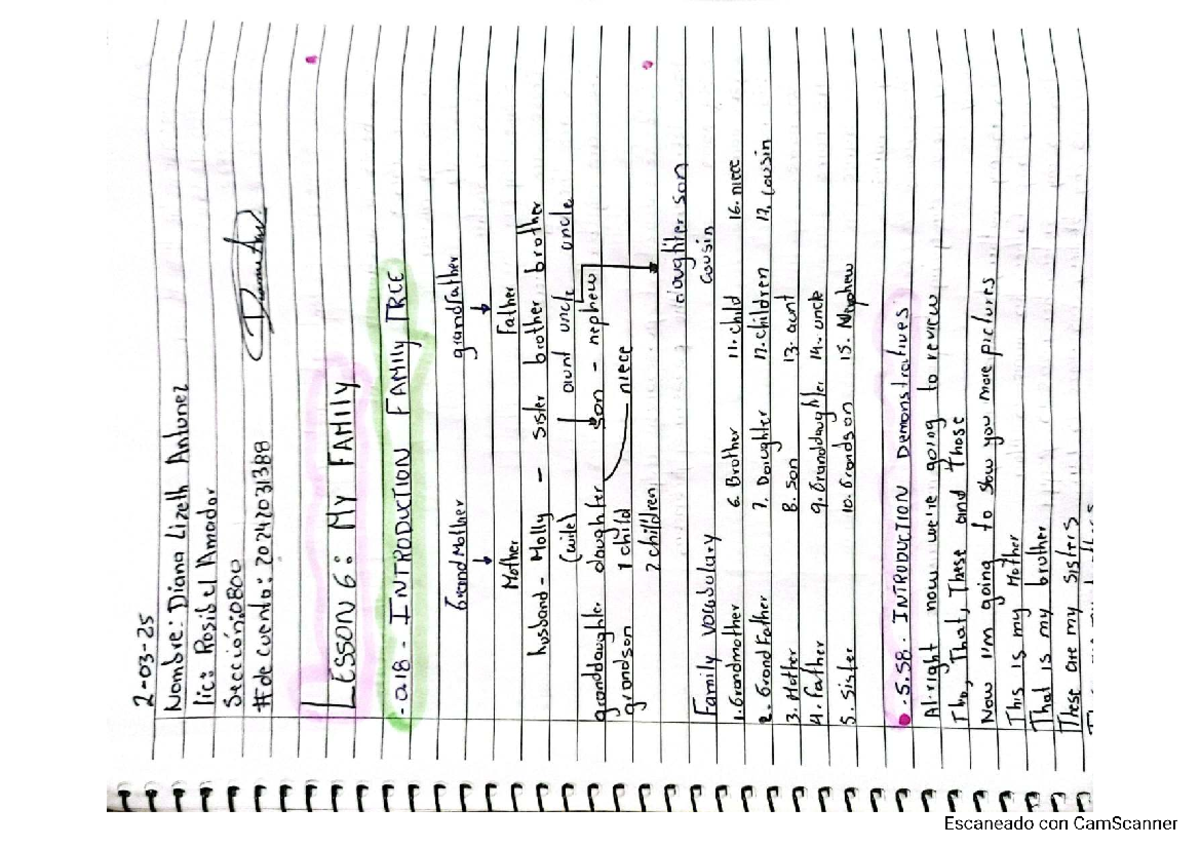 2-03-25
Nombre: Diana Lizeth Antunez
lic: Rosibel Amador
Sección:0800
#de cuenta: 20242031388
LESSON 6: MY FAMILY
-018 - INTRODUCTION FAMILY TREE
GrandMother grandfather
Mother Father
husband - Molly - sister brother brother
(wife) aunt uncle uncle
granddaughter daughter son - nephew
grandson 1 child niece
2 children daughter son
cousin
Family Vocabulary
1. Grandmother 6. Brother 11. child 16. niece
2. GrandFather 7. Daughter 12. children 17. cousin
3. Mother 8. son 13. aunt
4. Father 9. Granddaughter 14. uncle
5. Sister 10. Grandson 15. Nephew
.5.58. INTRODUCTION Demonstratives
Alright now we're going to review
That, These and Those
Now I'm going to show you more pictures
This is my Mother
That is my brother
These are my sisters
Escaneado con CamScanner